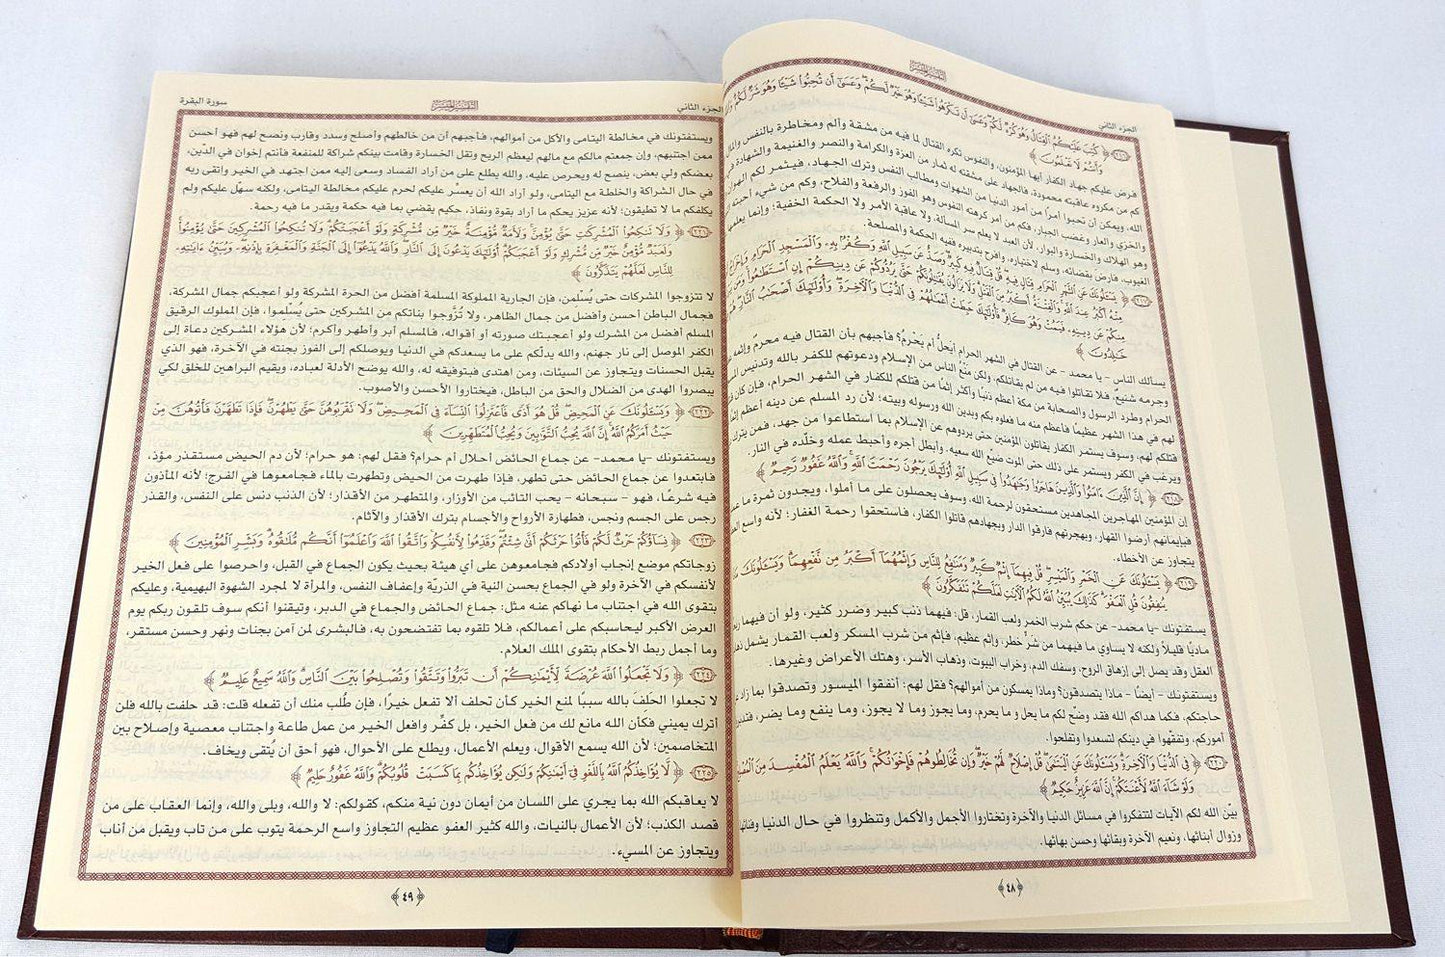 الجزء الثاني
التفسير الميسر
﴿ كُتِبَ عَلَيْكُمُ ٱلْقِتَالُ وَهُوَ كُرْهٌ لَّكُمْ وَعَسَىٰٓ أَن تَكْرَهُوا۟ شَيْـًٔا وَهُوَ خَيْرٌ لَّكُمْ وَعَسَىٰٓ أَن تُحِبُّوا۟ شَيْـًٔا وَهُوَ شَرٌّ لَّكُمْ
وَأَنتُمْ لَا تَعْلَمُونَ ﴾
فرض عليكم جهاد الكفار أيها المؤمنون، والنفوس تكره القتال لما فيه من مشقة وألم ومخاطرة بالنفس والمال
كم من مكروه عاقبته محمودة، فالجهاد على مشقته له ثمار من العزة والكرامة والنصر والغنيمة والشهادة في
الله. ويمكن أن تحبوا أمرًا من أمور الدنيا من الشهوات ومطالب النفس وترك الجهاد، فيثمر لكم الهوان
والخزي والعار وغضب الجبار، فكم من أمر كرهته النفوس وهو الفوز والرفعة والفلاح، وكم من شيء أحبته
وهو الهلاك والخسارة والبوار، لأن العبد لا يعلم سر المسألة، ولا عاقبة الأمر ولا الحكمة الخفية؛ وإنما يعلمها
الغيوب، فارض بقضائه، وسلم لاختياره، وافرح بتدبيره ففيه الحكمة والمصلحة.
﴿ يَسْـَٔلُونَكَ عَنِ ٱلشَّهْرِ ٱلْحَرَامِ قِتَالٍ فِيهِ قُلْ قِتَالٌ فِيهِ كَبِيرٌ وَصَدٌّ عَن سَبِيلِ ٱللَّهِ وَكُفْرٌۢ بِهِۦ وَٱلْمَسْجِدِ ٱلْحَرَامِ وَإِخْرَاجُ
مِنْهُ أَكْبَرُ عِندَ ٱللَّهِ وَٱلْفِتْنَةُ أَكْبَرُ مِنَ ٱلْقَتْلِ وَلَا يَزَالُونَ يُقَـٰتِلُونَكُمْ حَتَّىٰ يَرُدُّوكُمْ عَن دِينِكُمْ إِنِ ٱسْتَطَـٰعُوا۟ وَمَن
مِنكُمْ عَن دِينِهِۦ فَيَمُتْ وَهُوَ كَافِرٌ فَأُو۟لَـٰٓئِكَ حَبِطَتْ أَعْمَـٰلُهُمْ فِى ٱلدُّنْيَا وَٱلْـَٔاخِرَةِ وَأُو۟لَـٰٓئِكَ أَصْحَـٰبُ ٱلنَّارِ
خَـٰلِدُونَ ﴾
يسألك الناس - يا محمد - عن القتال في الشهر الحرام أيحلُّ أم يَحْرمُ؟ فأجبهم بأن القتال فيه محرم وإثمه
وجرمه شنيع، فلا تقاتلوا فيه من لم يقاتلكم، ولكن منعُ الناس من الإسلام ودعوتهم للكفر بالله وتدنيس
الحرام وطرد الرسول والصحابة من مكة أعظم ذنبًا وأكثر إثمًا من قتلكم للكفار في الشهر الحرام، فإن كان
لهم في هذا الشهر عظيمًا فأعظم منه ما فعلوه بكم وبدين الله ورسوله وبيته؛ لأن رد المسلم عن دينه أعظم
قتلكم لهم، وسوف يستمر الكفار يقاتلون المؤمنين حتى يردوهم عن الإسلام بما استطاعوا من جهد، فمن يترك
ويرغب في الكفر ويستمر على ذلك حتى الموت ضيّع الله سعيه، وأبطل أجره وأحبط عمله وخلّده في النار.
﴿ إِنَّ ٱلَّذِينَ ءَامَنُوا۟ وَٱلَّذِينَ هَاجَرُوا۟ وَجَـٰهَدُوا۟ فِى سَبِيلِ ٱللَّهِ أُو۟لَـٰٓئِكَ يَرْجُونَ رَحْمَتَ ٱللَّهِ وَٱللَّهُ غَفُورٌ رَّحِيمٌ ﴾
إن المؤمنين المهاجرين المجاهدين مستحقون لرحمة الله، وسوف يحصلون على ما أملوا، ويجدون ثمرة ما
فبإيمانهم أرضوا القهار، وبهجرتهم فارقوا الدار وبجهادهم قاتلوا الكفار، فاستحقوا رحمة الغفار؛ لأنه واسع
يتجاوز عن الأخطاء.
﴿ يَسْـَٔلُونَكَ عَنِ ٱلْخَمْرِ وَٱلْمَيْسِرِ قُلْ فِيهِمَآ إِثْمٌ كَبِيرٌ وَمَنَـٰفِعُ لِلنَّاسِ وَإِثْمُهُمَآ أَكْبَرُ مِن نَّفْعِهِمَا وَيَسْـَٔلُونَكَ
يُنفِقُونَ قُلِ ٱلْعَفْوَ كَذَٰلِكَ يُبَيِّنُ ٱللَّهُ لَكُمُ ٱلْـَٔايَـٰتِ لَعَلَّكُمْ تَتَفَكَّرُونَ ﴾
يستفتونك -يا محمد- عن حكم شرب الخمر ولعب القمار، قل: فيهما ذنب كبير وضرر كثير، ولو أن فيهما
ماديًّا قليلاً ولكنه لا يساوي ما فيهما من شرٍّ خطر، وإثم عظيم، فإثم من شرب المسكر ولعب القمار يشمل
العقل وقد يصل إلى إزهاق الروح، وسفك الدم، وخراب البيوت، وذهاب الأسر، وهتك الأعراض وغيرها.
ويستفتونك - أيضًا - ماذا يتصدقون؟ وماذا يمسكون من أموالهم؟ فقل لهم: أنفقوا الميسور وتصدقوا بما زاد
حاجتكم، فكما هداكم الله فقد وضّح لكم ما يحل و ما يحرم، وما يجوز وما لا يجوز، وما ينفع وما يضر،
أموركم، وتفقّهوا في دينكم لتسعدوا وتفلحوا.
﴿ فِى ٱلدُّنْيَا وَٱلْـَٔاخِرَةِ وَيَسْـَٔلُونَكَ عَنِ ٱلْيَتَـٰمَىٰ قُلْ إِصْلَاحٌ لَّهُمْ خَيْرٌ وَإِن تُخَالِطُوهُمْ فَإِخْوَٰنُكُمْ وَٱللَّهُ يَعْلَمُ ٱلْمُفْسِدَ مِنَ
وَلَوْ شَآءَ ٱللَّهُ لَأَعْنَتَكُمْ إِنَّ ٱللَّهَ عَزِيزٌ حَكِيمٌ ﴾
بيّن الله لكم الآيات لتتفكروا في مسائل الدنيا والآخرة وتختاروا الأجمل والأكمل وتنظروا في حال الدنيا
وزوال أبنائها، ونعيم الآخرة وبقائها وحسن بهائها.
٤٨
الجزء الثاني
سورة البقرة
ويستفتونك في مخالطة اليتامى والأكل من أموالهم، فأجبهم أن من خالطهم وأصلح وسدد وقارب ونصح لهم فهو أحسن
ممن اجتنبهم، وإن جمعتم مالكم مع مالهم ليعظم الربح وتقل الخسارة وقامت بينكم شراكة للمنفعة فأنتم إخوان في الدّين،
بعضكم ولي بعض، ينصح له ويحرص عليه، والله يطلع على من أراد الفساد وسعى إليه ممن اجتهد في الخير واتقى ربه
في حال الشراكة والخلطة مع اليتامى، ولو أراد الله أن يعسّر عليكم لحرم عليكم مخالطة اليتامى، ولكنه سهّل عليكم ولم
يكلفكم ما لا تطيقون؛ لأنه عزيز يحكم ما أراد بقوة ونفاذ، حكيم يقضي بما فيه حكمة ويقدر ما فيه رحمة.
﴿ وَلَا تَنكِحُوا۟ ٱلْمُشْرِكَـٰتِ حَتَّىٰ يُؤْمِنَّ وَلَأَمَةٌ مُّؤْمِنَةٌ خَيْرٌ مِّن مُّشْرِكَةٍ وَلَوْ أَعْجَبَتْكُمْ وَلَا تُنكِحُوا۟ ٱلْمُشْرِكِينَ حَتَّىٰ يُؤْمِنُوا۟
وَلَعَبْدٌ مُّؤْمِنٌ خَيْرٌ مِّن مُّشْرِكٍ وَلَوْ أَعْجَبَكُمْ أُو۟لَـٰٓئِكَ يَدْعُونَ إِلَى ٱلنَّارِ وَٱللَّهُ يَدْعُوٓا۟ إِلَى ٱلْجَنَّةِ وَٱلْمَغْفِرَةِ بِإِذْنِهِۦ وَيُبَيِّنُ ءَايَـٰتِهِۦ
لِلنَّاسِ لَعَلَّهُمْ يَتَذَكَّرُونَ ﴾
لا تتزوجوا المشركات حتى يُسْلِمن، فإن الجارية المملوكة المسلمة أفضل من الحرة المشركة ولو أعجبكم جمال المشركة،
فجمال الباطن أحسن وأفضل من جمال الظاهر، ولا تُزَوجوا بناتكم من المشركين حتى يُسْلِموا، فإن المملوك الرقيق
المسلم أفضل من المشرك ولو أعجبتك صورته أو أقواله، فالمسلم أبر وأطهر وأكرم؛ لأن هؤلاء المشركين دعاة إلى
الكفر الموصل إلى نار جهنم، والله يدلّكم على ما يسعدكم في الدنيا ويوصلكم إلى الفوز بجنته في الآخرة، فهو الذي
يقبل الحسنات ويتجاوز عن السيئات، ومن اهتدى فبتوفيقه له، والله يوضح الأدلة لعباده، ويقيم البراهين للخلق لكي
يبصروا الهدى من الضلال والحق من الباطل، فيختاروا الأحسن والأصوب.
﴿ وَيَسْـَٔلُونَكَ عَنِ ٱلْمَحِيضِ قُلْ هُوَ أَذًى فَٱعْتَزِلُوا۟ ٱلنِّسَآءَ فِى ٱلْمَحِيضِ وَلَا تَقْرَبُوهُنَّ حَتَّىٰ يَطْهُرْنَ فَإِذَا تَطَهَّرْنَ فَأْتُوهُنَّ مِنْ
حَيْثُ أَمَرَكُمُ ٱللَّهُ إِنَّ ٱللَّهَ يُحِبُّ ٱلتَّوَّٰبِينَ وَيُحِبُّ ٱلْمُتَطَهِّرِينَ ﴾
ويستفتونك -يا محمد- عن جماع الحائض أحلال أم حرام؟ فقل لهم: هو حرام؛ لأن دم الحيض مستقذر مؤذ،
فابتعدوا عن جماع الحائض حتى تطهر، فإذا طهرت من الحيض وتطهرت بالماء فجامعوها في الفرج؛ لأنه المأذون
فيه شرعًا، فهو - سبحانه - يحب التائب من الأوزار، والمتطهر من الأقذار؛ لأن الذنب دنس على النفس، والقذر
رجس على الجسم ونجس، فطهارة الأرواح والأجسام بترك الأقذار والآثام.
﴿ نِسَآؤُكُمْ حَرْثٌ لَّكُمْ فَأْتُوا۟ حَرْثَكُمْ أَنَّىٰ شِئْتُمْ وَقَدِّمُوا۟ لِأَنفُسِكُمْ وَٱتَّقُوا۟ ٱللَّهَ وَٱعْلَمُوٓا۟ أَنَّكُم مُّلَـٰقُوهُ وَبَشِّرِ ٱلْمُؤْمِنِينَ ﴾
زوجاتكم موضع إنجاب أولادكم فجامعوهن على أي هيئة بحيث يكون الجماع في القبل، واحرصوا على فعل الخير
لأنفسكم في الآخرة ولو في الجماع بحسن النية في الذريّة وإعفاف النفس، والمرأة لا لمجرد الشهوة البهيمية، وعليكم
بتقوى الله في اجتناب ما نهاكم عنه مثل: جماع الحائض والجماع في الدبر، وتيقنوا أنكم سوف تلقون ربكم يوم
العرض الأكبر ليحاسبكم على أعمالكم، فلا تلقوه بما تفتضحون به، فالبشرى لمن آمن بجنات ونهر وحسن مستقر،
وما أجمل ربط الأحكام بتقوى الملك العلام.
﴿ وَلَا تَجْعَلُوا۟ ٱللَّهَ عُرْضَةً لِّأَيْمَـٰنِكُمْ أَن تَبَرُّوا۟ وَتَتَّقُوا۟ وَتُصْلِحُوا۟ بَيْنَ ٱلنَّاسِ وَٱللَّهُ سَمِيعٌ عَلِيمٌ ﴾
لا تجعلوا الحَلفَ بالله سببًا لمنع الخير كأن تحلف ألا تفعل خيرًا، فإن طُلب منك أن تفعله قلت: قد حلفت بالله فلن
أترك يميني فكأن الله مانع لك من فعل الخير، بل كفّر وافعل الخير من عمل طاعة واجتناب معصية وإصلاح بين
المتخاصمين؛ لأن الله يسمع الأقوال، ويعلم الأعمال، ويطلع على الأحوال، فهو أحق أن يُتقى ويخاف.
﴿ لَّا يُؤَاخِذُكُمُ ٱللَّهُ بِٱللَّغْوِ فِىٓ أَيْمَـٰنِكُمْ وَلَـٰكِن يُؤَاخِذُكُم بِمَا كَسَبَتْ قُلُوبُكُمْ وَٱللَّهُ غَفُورٌ حَلِيمٌ ﴾
لا يعاقبكم الله بما يجري على اللسان من أيمان دون نية منكم، كقولكم: لا والله، وبلى والله، وإنما العقاب على من
قصد الكذب؛ لأن الأعمال بالنيات، والله كثير العفو عظيم التجاوز واسع الرحمة يتوب على من تاب ويقبل من أناب
ويتجاوز عن المسيء.
٤٩